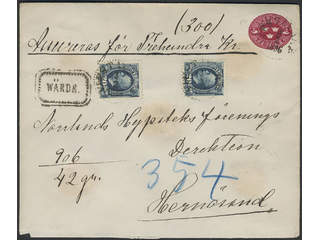 (300)
Assureras för Trehundra Kr.
WÄRDE.
Norrlands Hypoteks förenings
Direktion
906
354
42 gr.
Hernösand